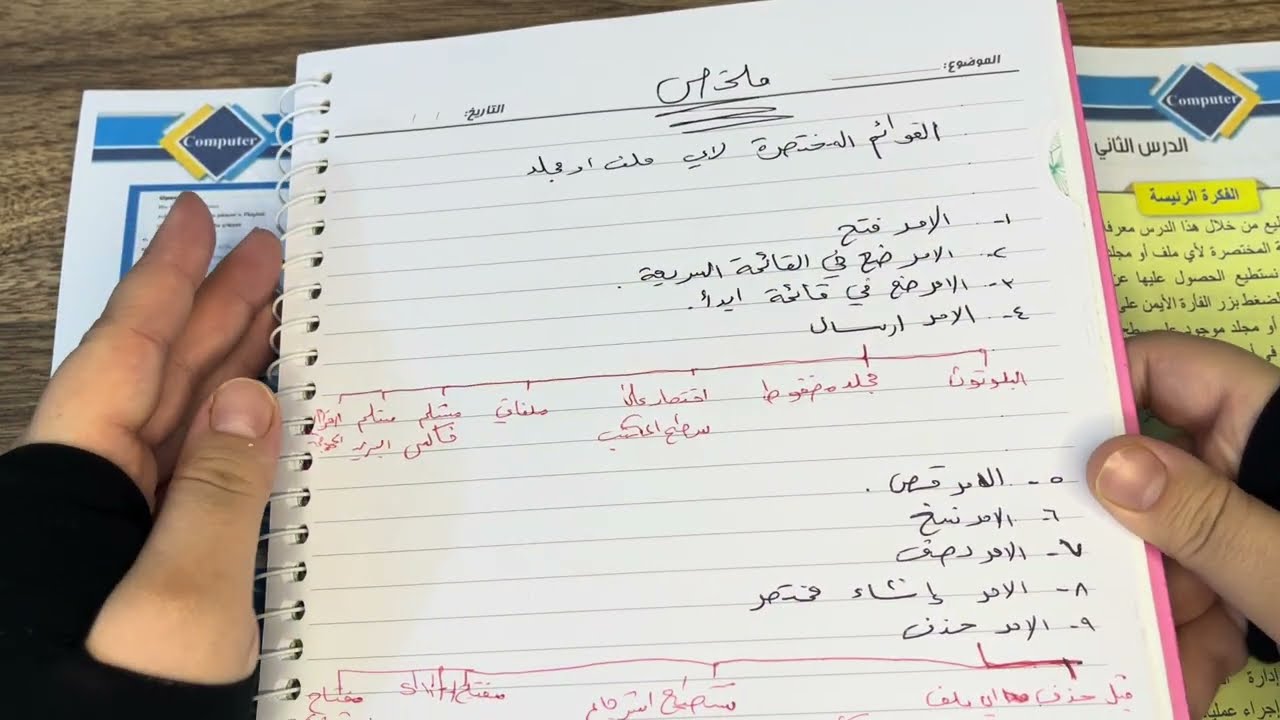 الموضوع:
ملخص
التاريخ: / /
القوائم المختصرة لاي ملف او مجلد
١- الامر فتح
٢- الامر ضع في القائمة السريعة.
٣- الامر ضع في قائمة ابدأ.
٤- الامر ارسال
البلوتوث
مجلد مضغوط
اختصار على سطح المكتب
ملفاتي
مستلم فاكس
مستلم البريد
٥- الامر قص.
٦- الامر نسخ
٧- الامر لصق
٨- الامر إنشاء مختصر
٩- الامر حذف
قبل حذف اي ملف
نستطيع استرجاع
مفتاح
مفتاح
Computer
Computer
الدرس الثاني
الفكرة الرئيسة
من خلال هذا الدرس معرفة
المختصرة لأي ملف أو مجلد
نستطيع الحصول عليها عن
بزر الفأرة الأيمن على
أو مجلد موجود على سطح
إدارة